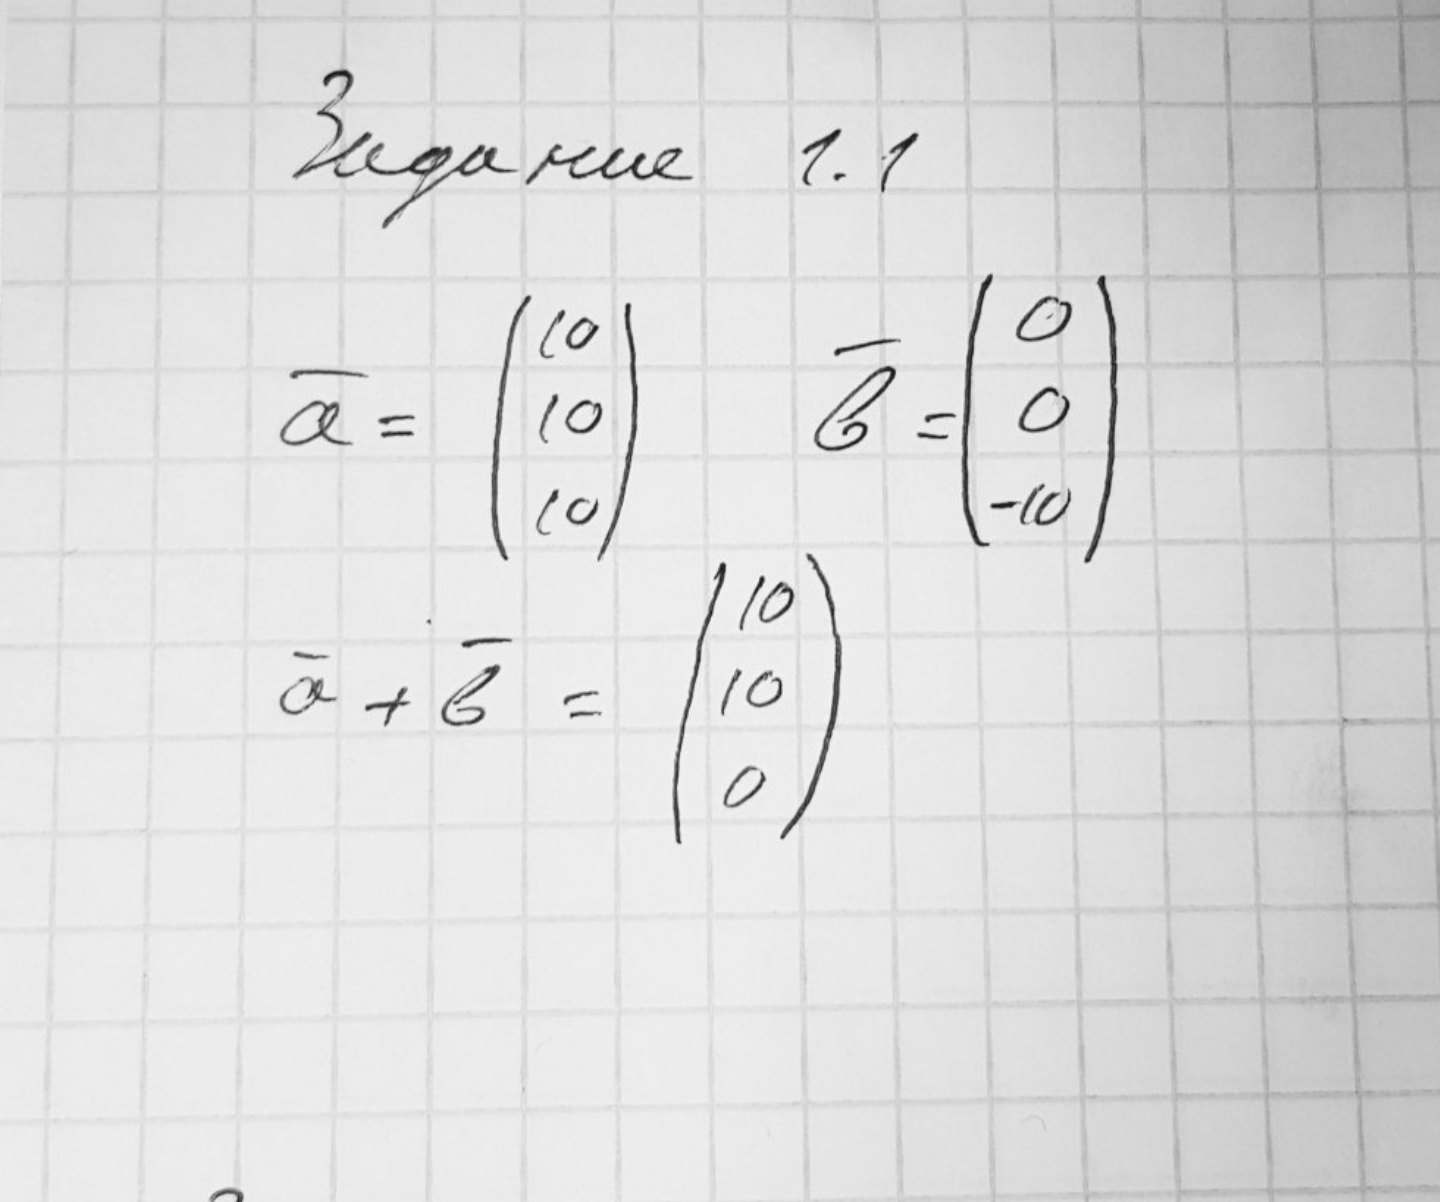 Задание 1.1
a̅ = (10 10 10) b̅ = (0 0 -10)
a̅ + b̅ = (10 10 0)